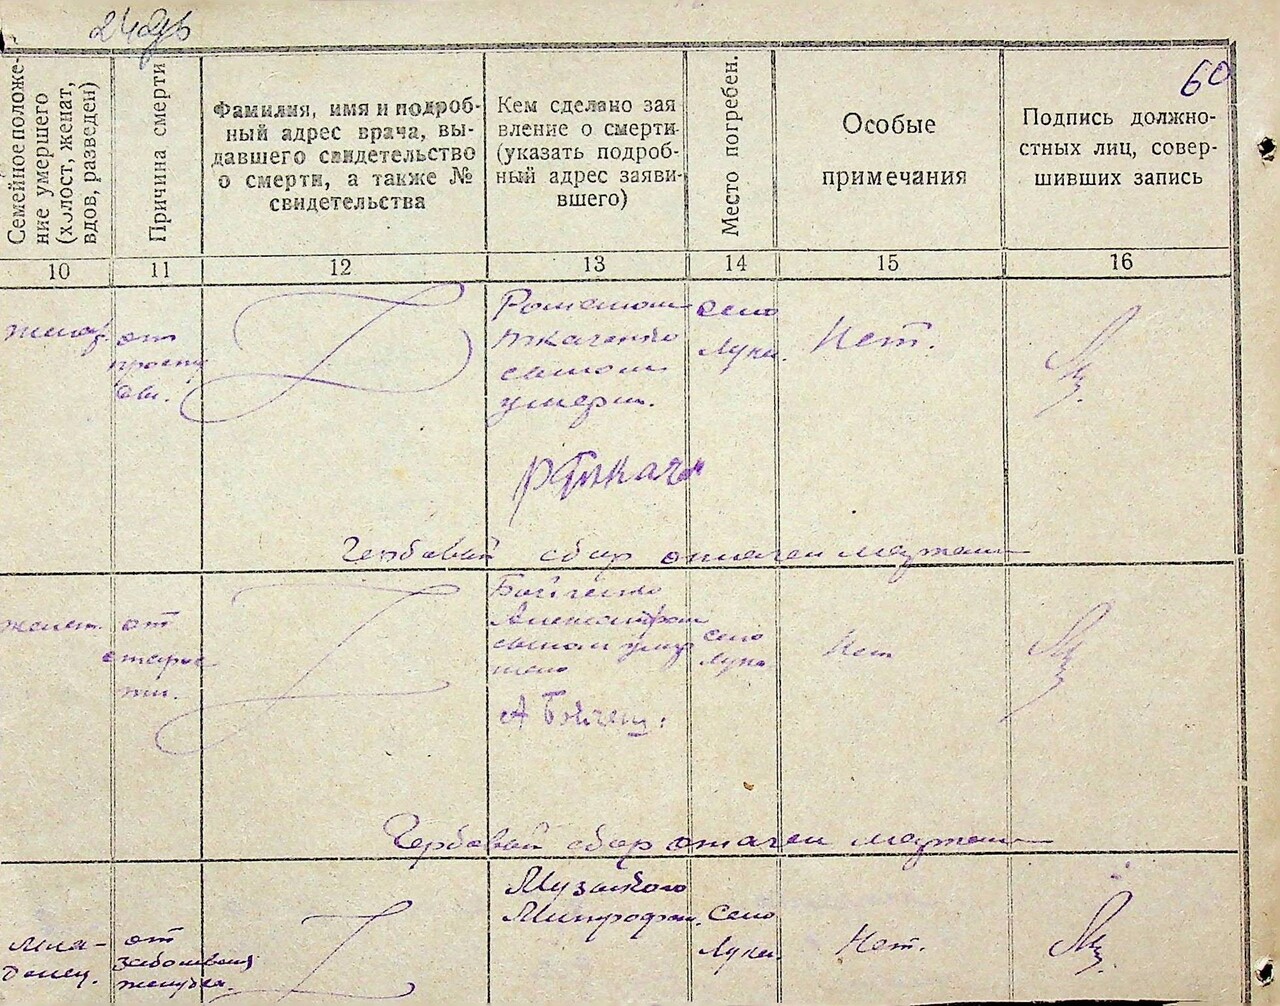 60
Семейное положе-
ние умершего
(холост, женат,
вдов, разведен)
Причина смерти
Фамилия, имя и подроб-
ный адрес врача, вы-
давшего свидетельство
о смерти, а также №
свидетельства
Кем сделано зая
вление о смерти
(указать подроб-
ный адрес заяви-
вшего)
Место погребен.
Особые
примечания
Подпись должно-
стных лиц, совер-
шивших запись
10 11 12 13 14 15 16
женат.
от
просту
ды.
Романом
Ткаченко
сыном
умерш.
село
Луки.
Нет.
Р Ткачен
Гербовый сбор оплачен марками
женат.
от
старос
ти.
Бойченко
Александром
сыном умер
шего
село
Лука
Нет
А Бойчен:
Гербовый сбор оплачен марками
Мла-
денец.
от
заболевания
желудка.
Музыкою
Митрофан.
село
Луки.
Нет.